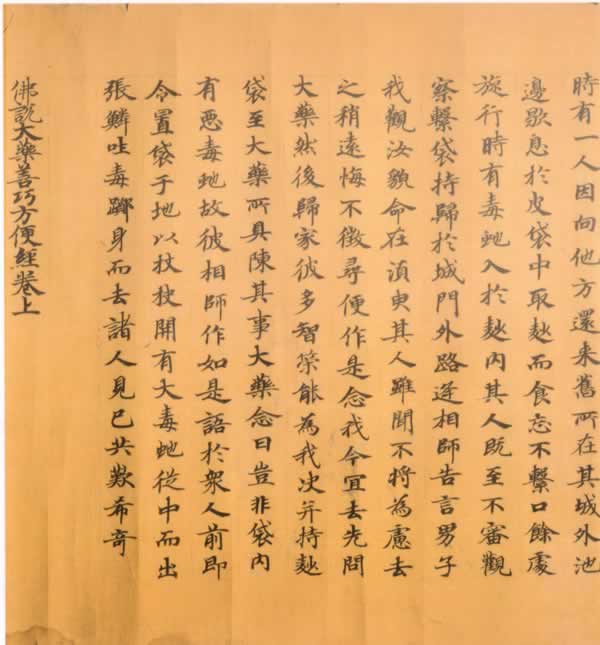 時有一人因向他方還来舊所在其城外池
邊歇息於皮袋中取麨而食忘不繫口餘處
旋行時有毒虵入於麨内其人既至不審觀
察繫袋持歸於城門外路逢相師告言男子
我觀汝貌命在湏臾其人雖聞不將為慮去
之稍遠悔不徵尋便作是念我今宜去先問
大藥然後歸家彼多智策能為我决并持麨
袋至大藥所具陳其事大藥念曰豈非袋内
有悪毒虵故彼相師作如是語於衆人前即
令置袋于地以杖抆開有大毒虵從中而出
張鱗吐毒躑身而去諸人見已共歎希奇
佛説大藥善巧方便經卷上